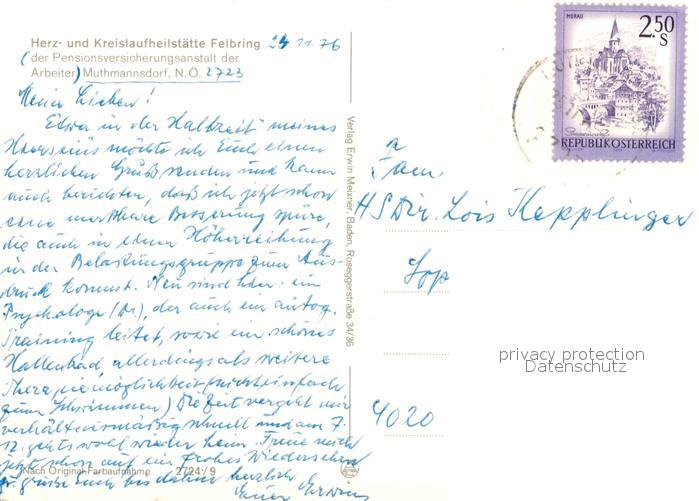 Herz- und Kreislaufheilstätte Felbring 24.11.76
(der Pensionsversicherungsanstalt der
Arbeiter) Muthmannsdorf, N.Ö. 2723
Meine Lieben!
Etwa in der "Halbzeit" meines
Hierseins möchte ich Euch einen
herzlichen Gruß senden und kann
auch berichten, daß ich jetzt schon
eine merkbare Besserung spüre,
die auch in einer Höherreihung
in der Belastungsgruppe zum Aus-
druck kommt. Neu sind hier: ein
Psychologe (Dr.), der auch ein autog.
Training leitet, sowie ein schönes
Hallenbad, allerdings als weitere
Therapiemöglichkeit (nicht einfach
zum Schwimmen) Die Zeit vergeht mir
verhältnismäßig schnell und am 7.
12. gehts wohl wieder heim. Freue mich
jetzt schon auf ein frohes Wiedersehen
u. grüße Euch bis dahin herzlich
Euer
Nach Original-Farbaufnahme 2724/9
Verlag Erwin Meixner, Baden, Roseggerstraße 34/36
MURAU
2.50
S
REPUBLIK ÖSTERREICH
Fam
HSDir. Lois Kepplinger
4020
privacy protection
Datenschutz